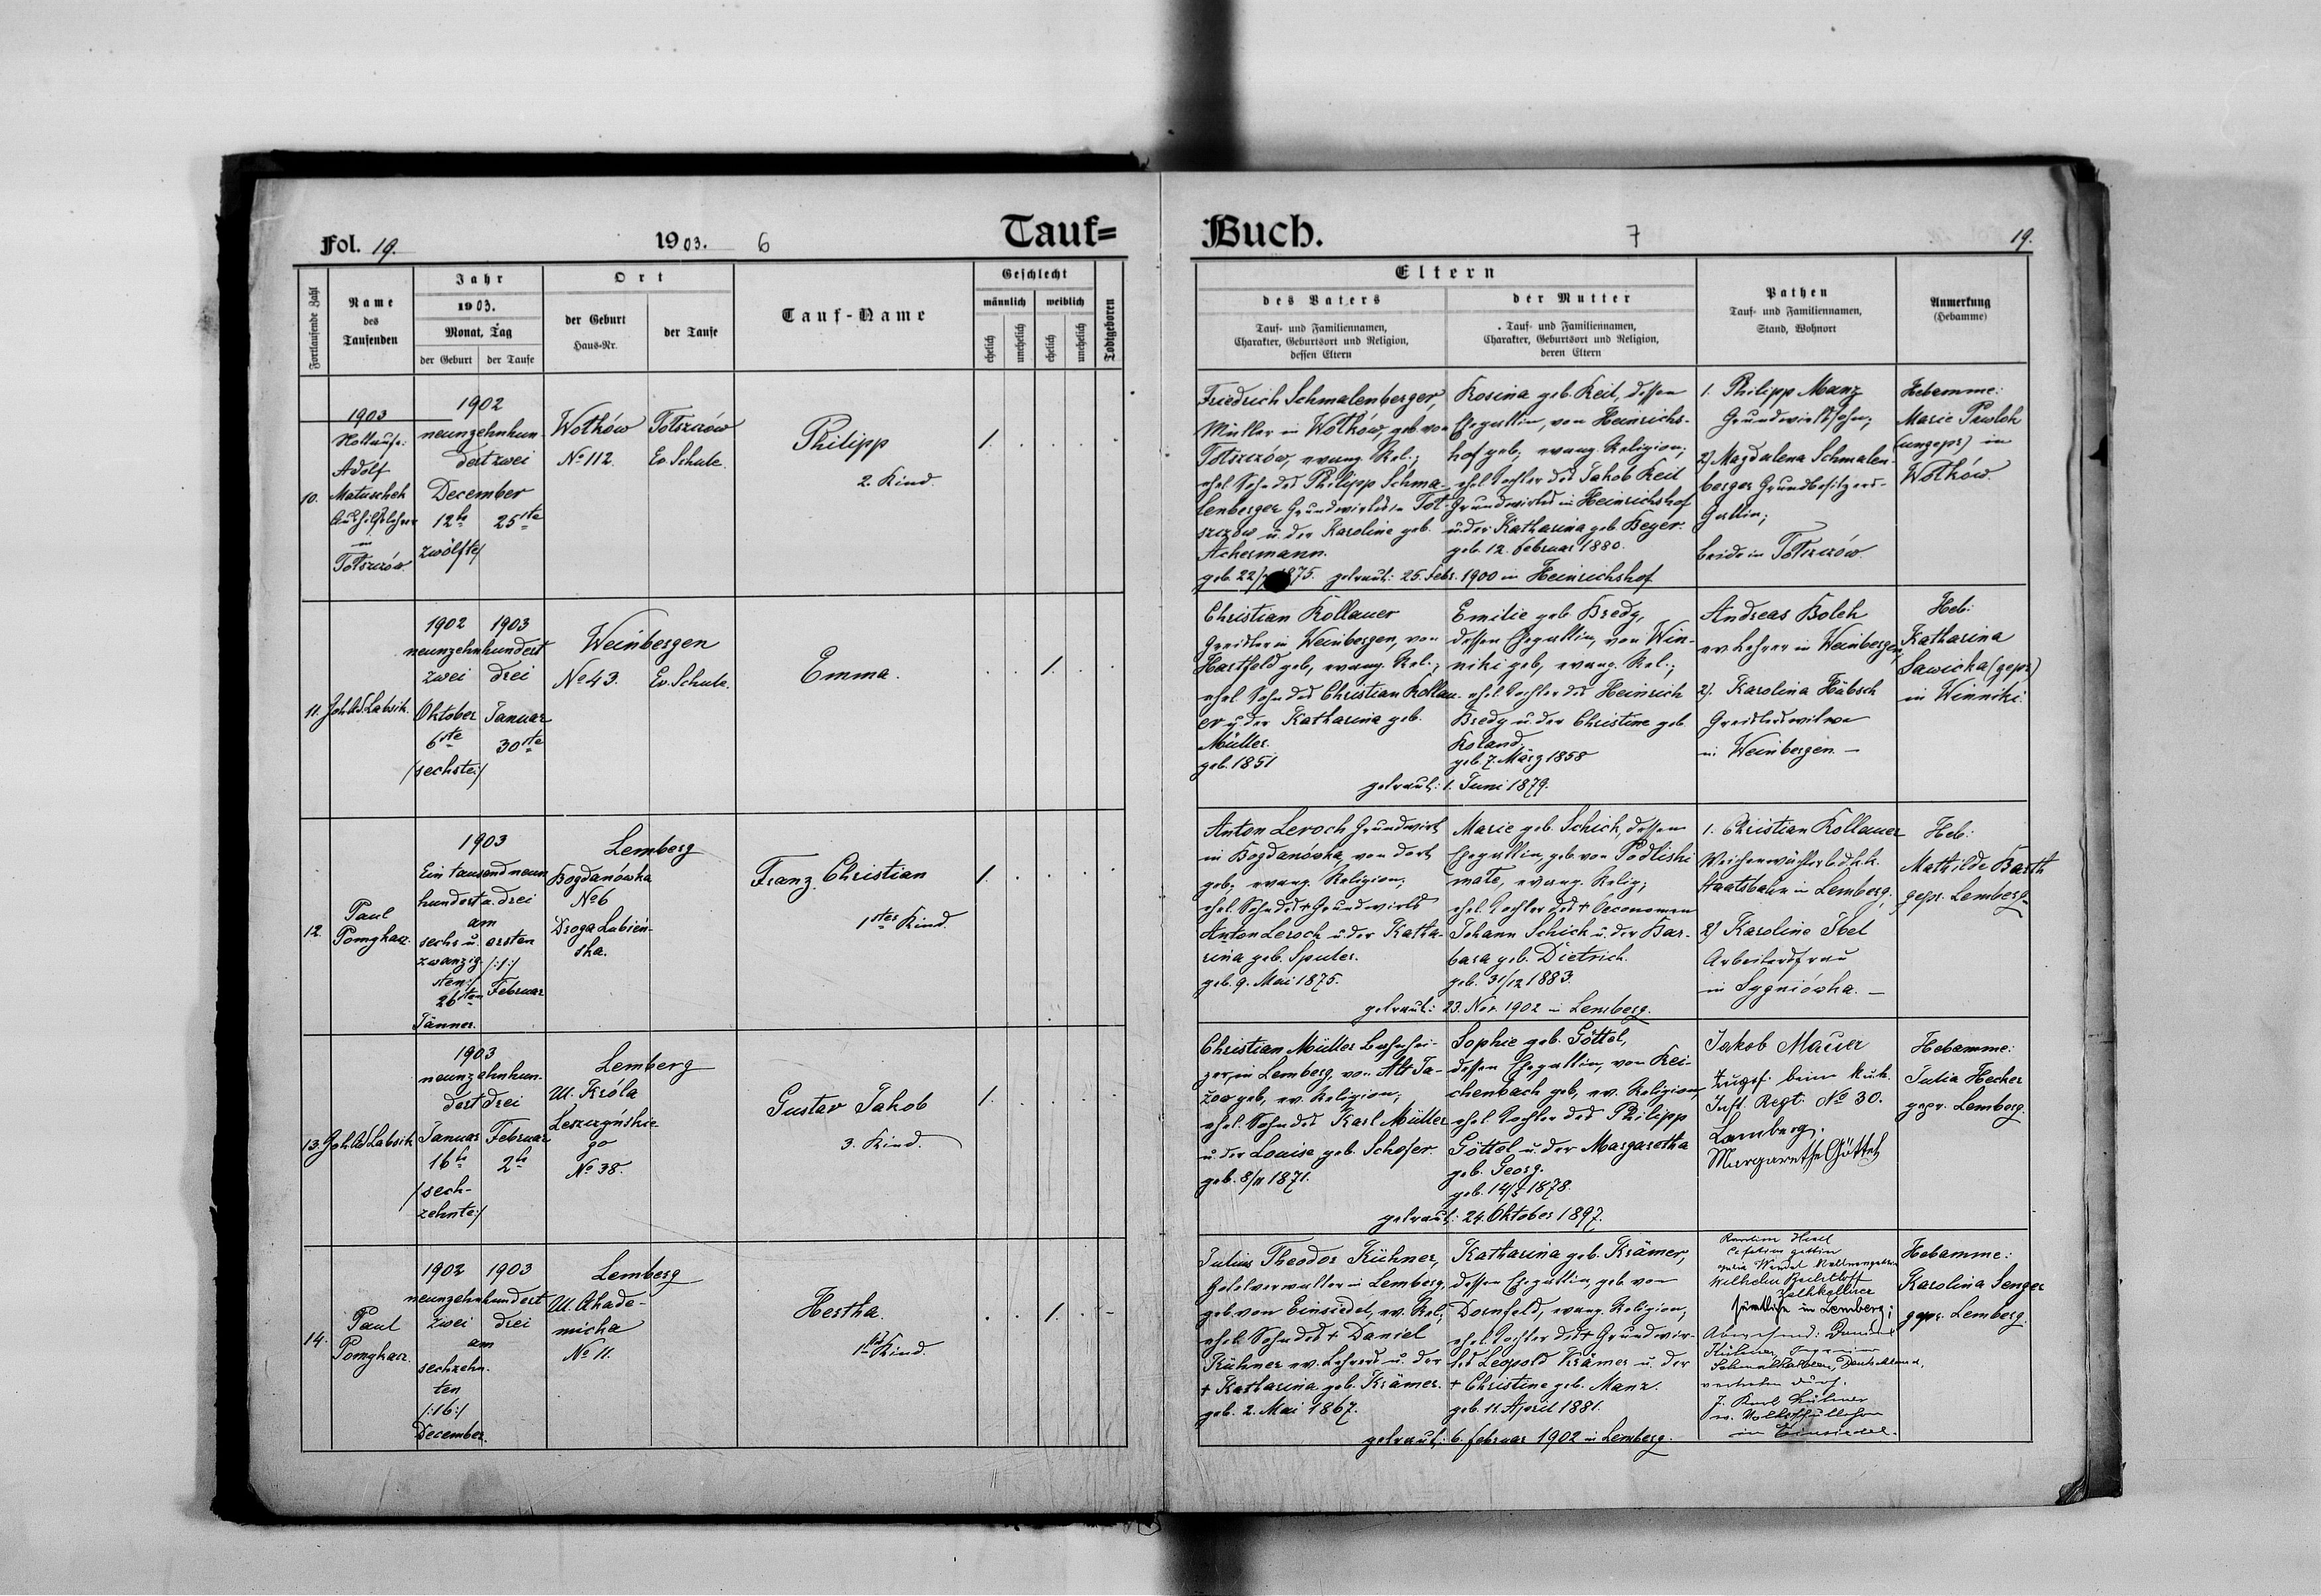 Fol. 19.
1903.
6
Tauf=
Fortlaufende Zahl
Name
des
Taufenden
Jahr
1903.
Monat, Tag
der Geburt
der Taufe
Ort
der Geburt
Haus-Nr.
der Taufe
Tauf-Name
Geschlecht
männlich
weiblich
ehelich
unehelich
ehelich
unehelich
Todtgeboren
10.
1903
Nottaufe:
Adolf
Matuschek
Aushilfslehrer
in
Totszczów
1902
neunzehnhun-
dert zwei
December
12te 25ste
zwölfte/
Wołków
No 112.
Totszczów
Ev. Schule.
Philipp
2. Kind.
1.
11.
Joh. Labsik.
1902 1903
neunzehnhundert
zwei drei
Oktober Januar
6ste 30ste
/sechste:/
Weinbergen
No 43. Ev. Schule.
Emma.
1.
12.
Paul
Pomykacz.
1903
Ein tausend neun
hundert u. drei
am
sechs u. ersten
zwanzig- /:1:/
sten:/
26sten Februar
Jänner.
Lemberg
Bogdanówka
No 6
Droga Lubień-
ska.
Franz Christian
1stes Kind.
1.
13.
Joh. Labsik
1903
neunzehnhun-
dert drei
Januar Februar
16te 2te
/sech-
zehnte:/
Lemberg
Ul. Króla
Leszczyńskie-
go
No 38.
Gustav Jakob
3. Kind.
1.
14.
Paul
Pomykacz.
1902 1903
neunzehnhundert
zwei drei
am
sechzehn-
ten
/:16:/
December.
Lemberg
Ul. Akade-
micka
No 11.
Hertha.
1tes Kind.
1.
Buch.
7
19.
Eltern
des Vaters
Tauf- und Familiennamen,
Charakter, Geburtsort und Religion,
dessen Eltern
der Mutter
Tauf- und Familiennamen,
Charakter, Geburtsort und Religion,
deren Eltern
Pathen
Tauf- und Familiennamen,
Stand, Wohnort
Anmerkung
(Hebamme)
Friedrich Schmalenberger,
Müller in Wołków, geb. von
Totszczów, evang. Rel.;
ehel. Sohn des Philipp Schma-
lenberger Grundwirtes in Tot-
szczów u. der Karoline geb.
Ackermann.
geb. 22/ 1875.
Rosina geb. Keil, dessen
Ehegattin, von Heinrichs-
hof geb., evang. Religion;
ehel. Tochter des Jakob Keil
Grundwirtes in Heinrichshof
u. der Katharina geb. Beyer.
geb. 12. Februar 1880.
getraut: 25. Febr. 1900 in Heinrichshof
1. Philipp Manz
Grundwirtssohn;
2) Magdalena Schmalen-
berger Grundbesitzers-
Gattin;
beide in Totszczów.
Hebamme:
Marie Pawloh
(ungepr) in
Wołków.
Christian Kollauer
Greisler in Weinbergen, von
Hartfeld geb., evang. Rel.;
ehel. Sohn des Christian Kollau-
er u. der Katharina geb.
Müller.
geb. 1851
Emilie geb. Bredy,
dessen Ehegattin, von Win-
niki geb., evang. Rel.;
ehel. Tochter des Heinrich
Bredy u. der Christine geb.
Roland.
geb. 7. März 1858
getraut: 1. Juni 1879.
Andreas Bolek
ev. Lehrer in Weinbergen;
2). Karolina Hübsch
Greislerswitwe
in Weinbergen. —
Heb:
Katharina
Sawicka (gepr)
in Winniki.
Anton Leroch Grundwirt
in Bogdanówka, von dort
geb., evang. Religion;
ehel. Sohn des + Grundwirts
Anton Leroch u. der Katha-
rina geb. Sputer.
geb. 9. Mai 1875.
Marie geb. Schick, dessen
Ehegattin, geb. von Podliski
małe, evang. Relig;
ehel. Tochter des + Oeconomen
Johann Schick u. der Bar-
bara geb. Dietrich.
geb. 31/12 1883.
getraut: 23. Nov. 1902 in Lemberg.
1. Christian Kollauer
Weichenwächter b. d. k. k.
Staatsbahn in Lemberg;
2) Karoline Ibel
Arbeitersfrau
in Sygniówka. —
Heb:
Mathilde Barth
gepr. Lemberg.
Christian Müller Bahnhei-
zer, in Lemberg, von Alt Ja-
zow geb., ev. Religion;
ehel. Sohn des Karl Müller
u. der Louise geb. Schofer.
geb. 8/11 1871.
Sophie geb. Göttel,
dessen Ehegattin, von Rei-
chenbach geb., ev. Religion,
ehel. Tochter des Philipp
Göttel u. der Margaretha
geb. Georg.
geb. 14/5 1878.
getraut: 24. Oktober 1897.
Jakob Mauer
Zugsf. beim k. u. k.
Inft. Regt. No 30.
Lemberg.
Margarethe Göttel
Hebamme:
Julia Hecker
gepr. Lemberg.
Julius Theodor Kühner,
Hotelverwalter in Lemberg,
geb. von Einsiedel, ev. Rel.;
ehel. Sohn des + Daniel
Kühner ev. Lehrers u. der
+ Katharina geb. Krämer.
geb. 2. Mai 1867.
Katharina geb. Krämer,
dessen Ehegattin, geb. von
Dornfeld, evang. Religion;
ehel. Tochter des + Grundwir-
tes Leopold Krämer u. der
+ Christine geb. Manz.
geb. 11. April 1881.
getraut: 6. Februar 1902 in Lemberg.
Wilhelm Bechtloff
Zahlkellner
sämtliche in Lemberg;
Abwesend: Daniel
Kühner, Ingenieur
Schmalkalden, Deutschland,
vertreten durch:
J. Karl Kühner
ev. Volksschullehrer
in Einsiedel.
Hebamme:
Karolina Senger
gepr. Lemberg.